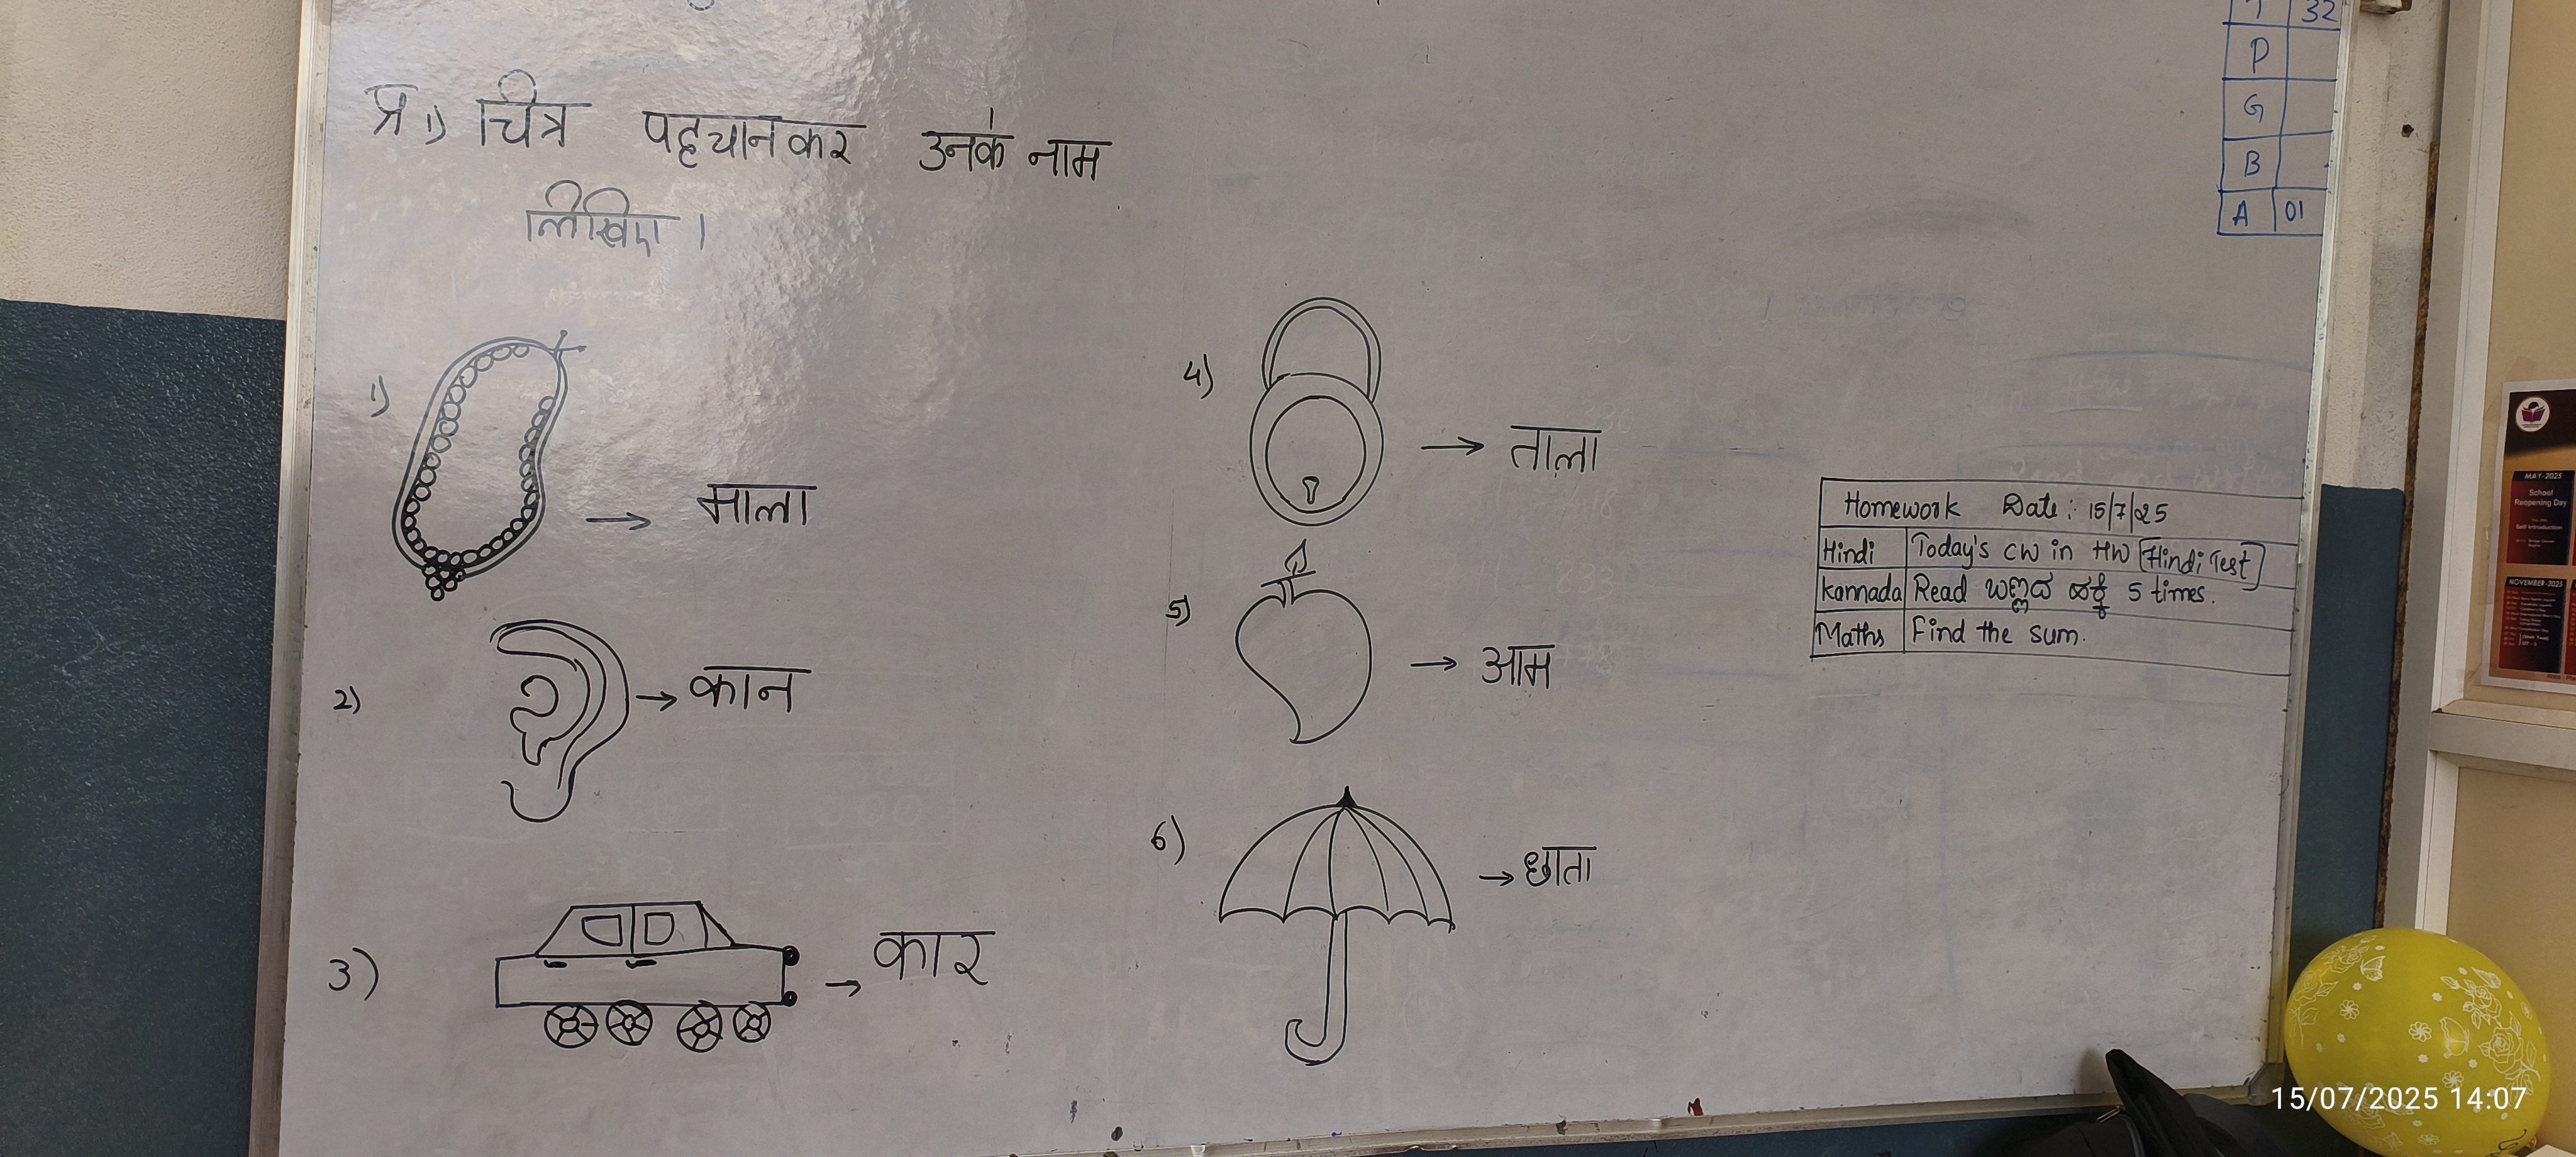 प्र 1) चित्र पहचानकर उनके नाम
लिखिए।
1) → माला
2) → कान
3) → कार
4) → ताला
5) → आम
6) → छाता
Homework Date: 15/7/25
Hindi Today's CW in HW [Hindi Test]
Kannada Read ಬಣ್ಣದ ಹಕ್ಕಿ 5 times.
Maths Find the sum.
T 32
P
G
B
A 01
MAY-2025
School
Reopening Day
Self Introduction
NOVEMBER-2025
15/07/2025 14:07